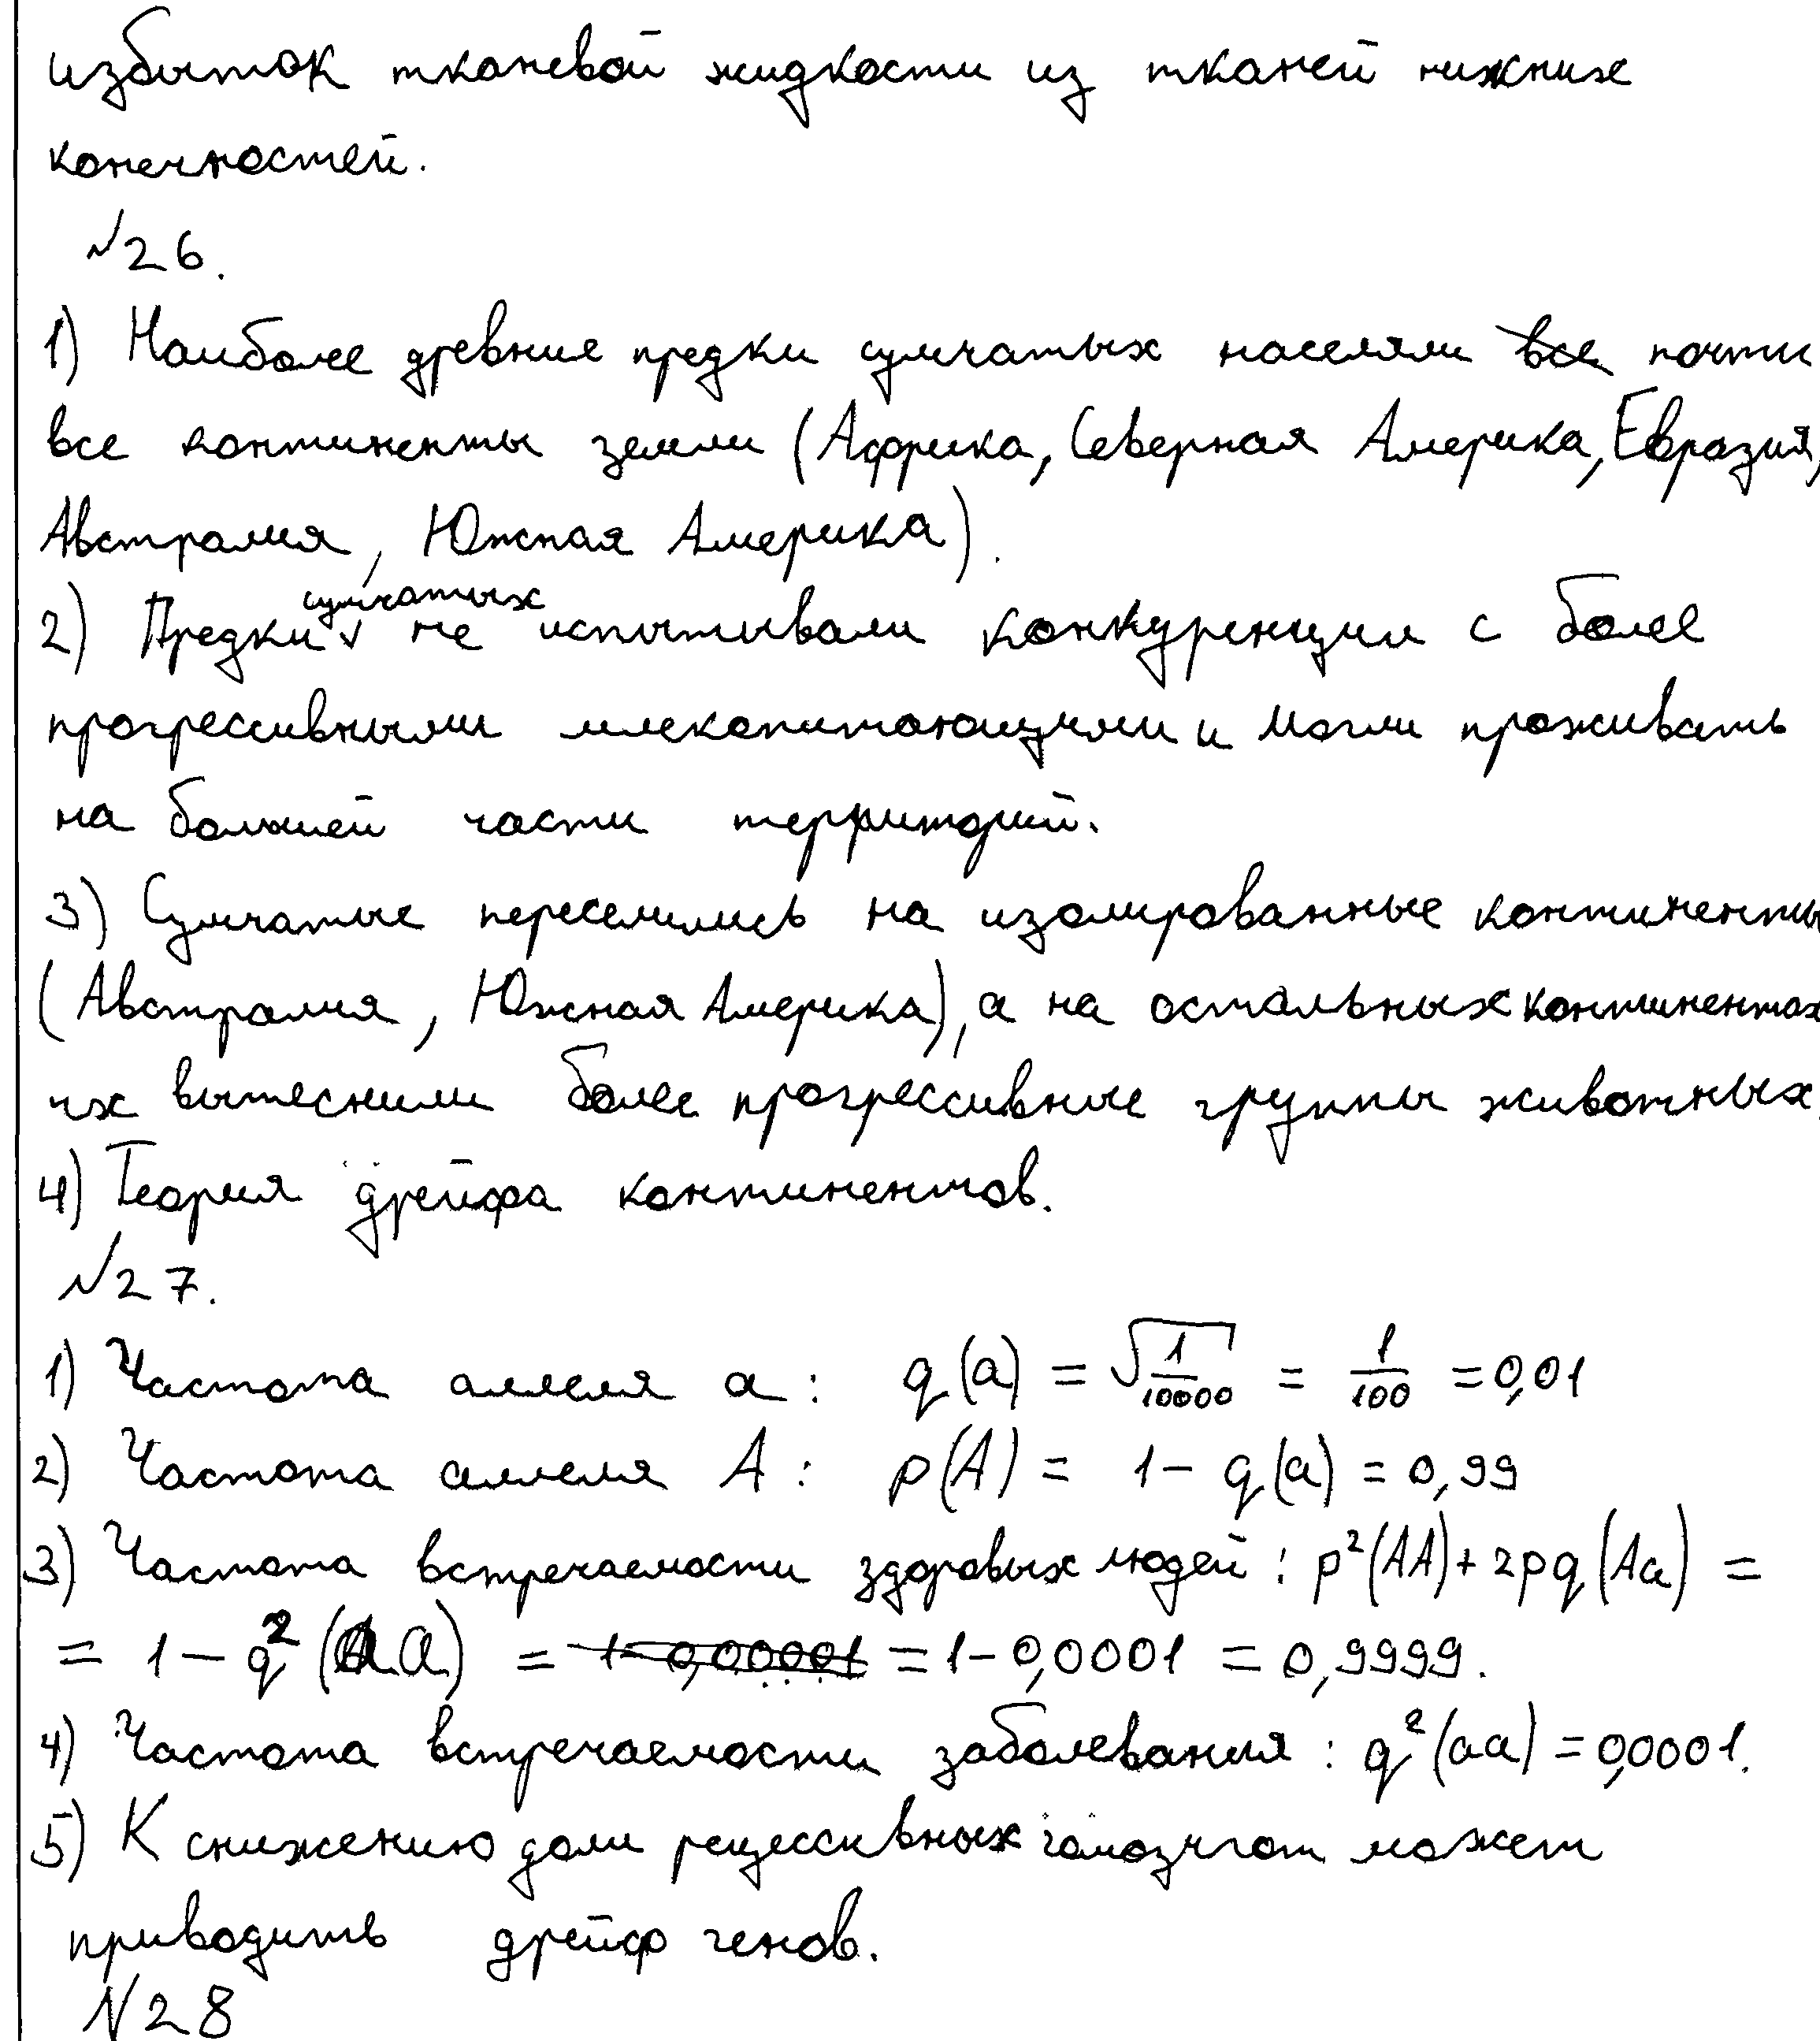 избыток тканевой жидкости из тканей нижних
конечностей.
№26.
1) Наиболее древние предки сумчатых населяли все почти
все континенты земли (Африка, Северная Америка, Евразия,
Австралия, Южная Америка).
2) Предки сумчатых не испытывали конкуренции с более
прогрессивными млекопитающими и могли проживать
на большей части территорий.
3) Сумчатые переселились на изолированные континенты
(Австралия, Южная Америка), а на остальных континентах
их вытеснили более прогрессивные группы животных.
4) Теория дрейфа континентов.
№27.
1) Частота аллеля a: q(a) = √(1/10000) = 1/100 = 0,01
2) Частота аллеля A: p(A) = 1 - q(a) = 0,99
3) Частота встречаемости здоровых людей: p²(AA) + 2pq(Aa) =
= 1 - q²(aa) = 1-0,00001 = 1 - 0,0001 = 0,9999.
4) Частота встречаемости заболевания: q²(aa) = 0,0001.
5) К снижению доли рецессивных гомозигот может
приводить дрейф генов.
№28